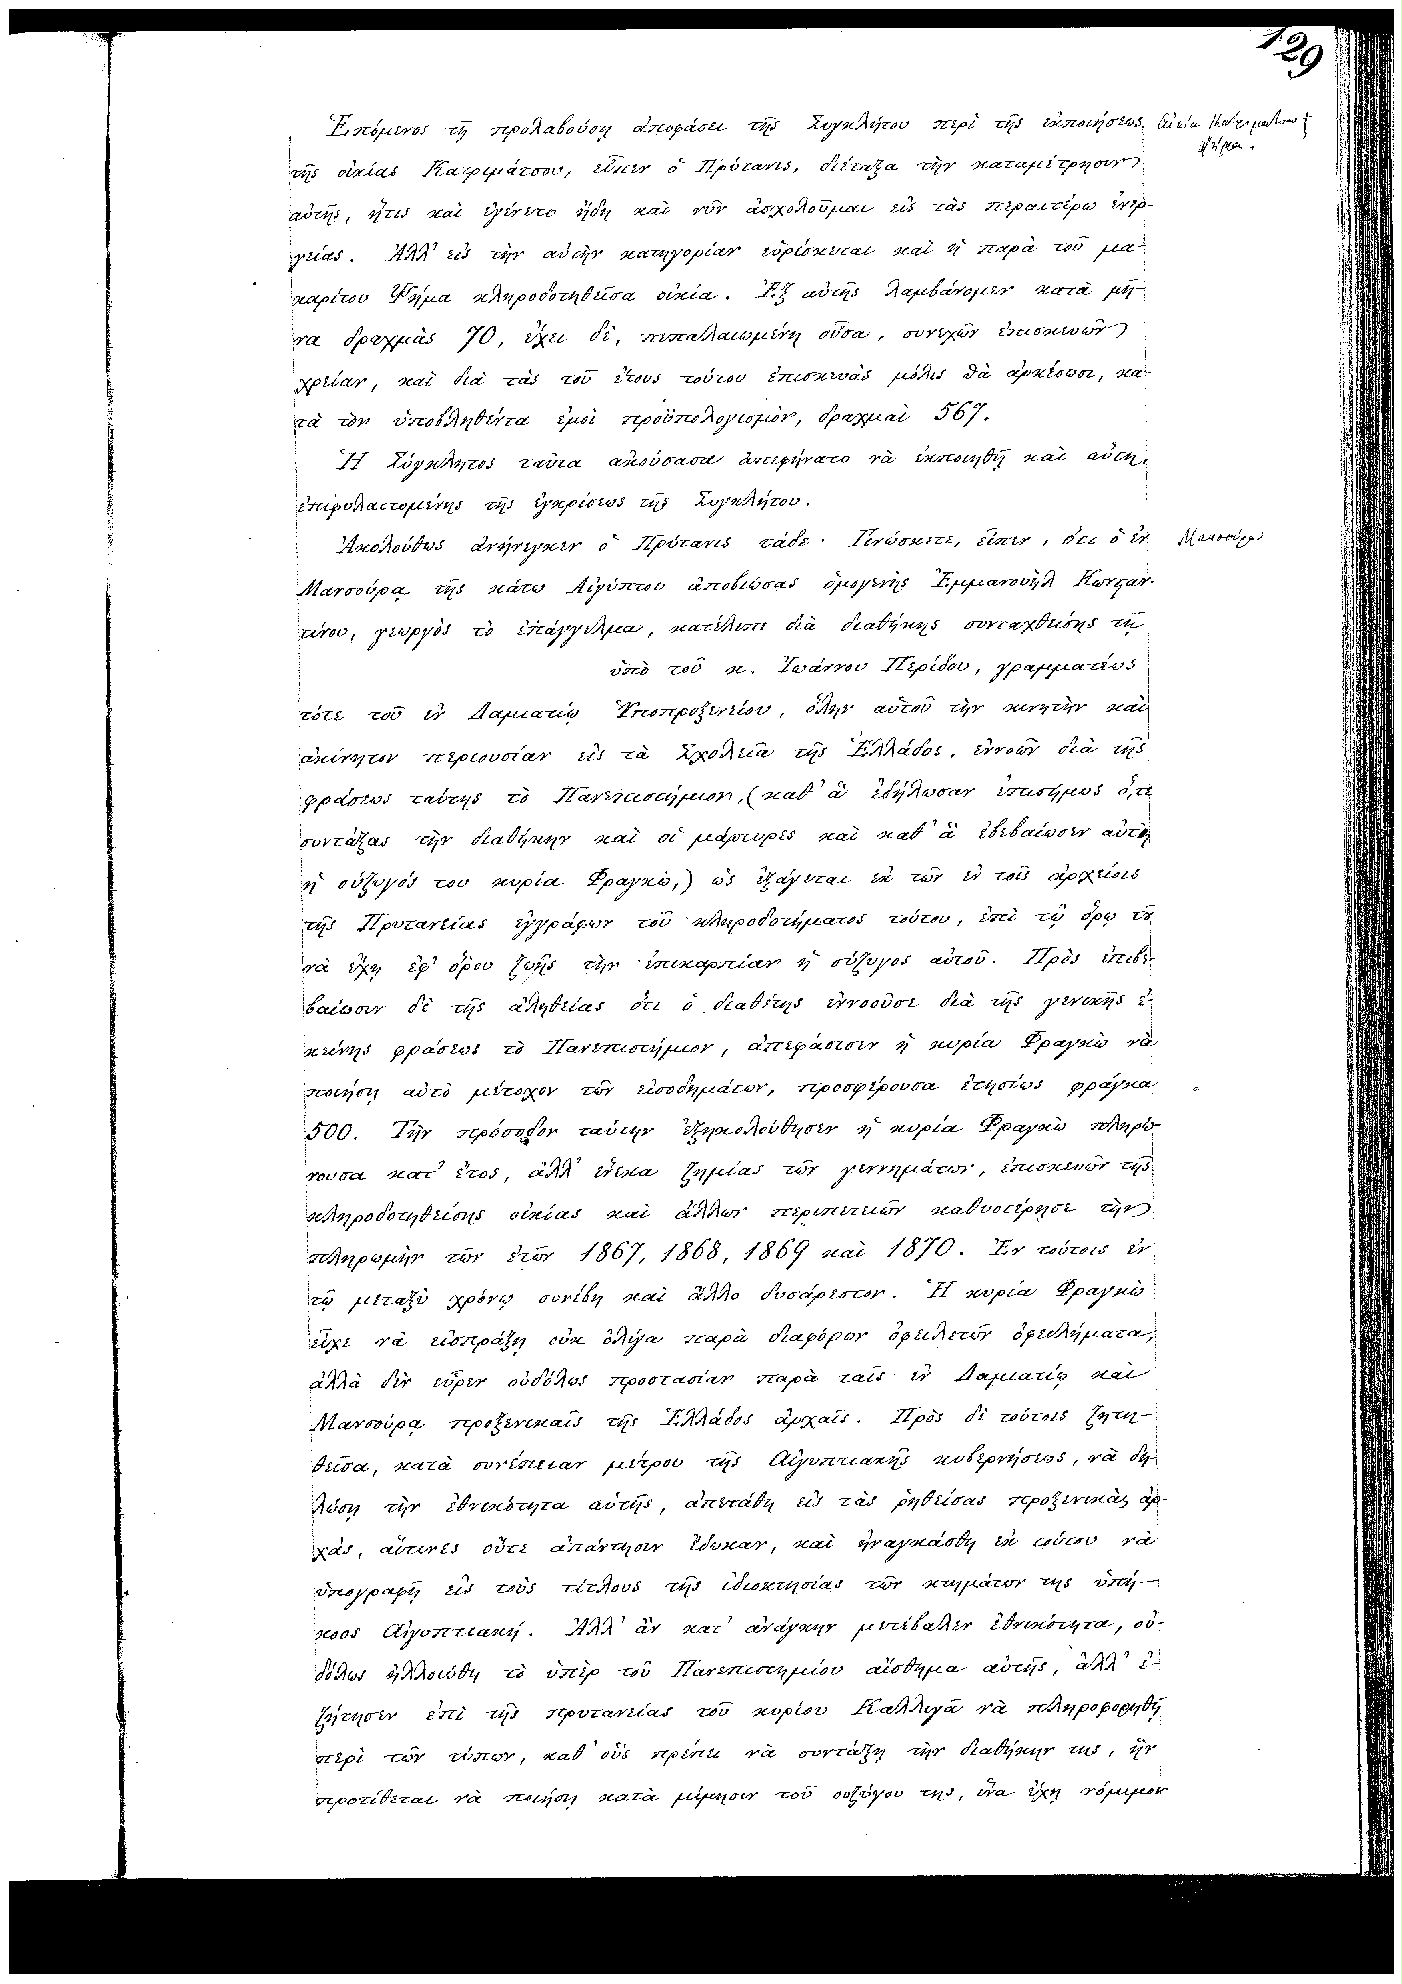 129
Ἑπόμενος τῇ προλαβούσῃ ἀποφάσει τῆς Συγκλήτου περὶ τῆς ἐκποιήσεως
Οἰκία Κατριμάτσου
Ψήμα.
τῆς οἰκίας Κατριμάτσου, εἶπεν ὁ Πρύτανις, διέταξα τὴν καταμέτρησιν
αὐτῆς, ἥτις καὶ ἐγένετο ἤδη καὶ νῦν ἀσχολοῦμαι εἰς τὰς περαιτέρω ἐνερ-
γείας. Ἀλλ' εἰς τὴν αὐτὴν κατηγορίαν εὑρίσκεται καὶ ἡ παρὰ τοῦ μα-
καρίτου Ψήμα κληροδοτηθεῖσα οἰκία. Ἐξ αὐτῆς λαμβάνομεν κατὰ μῆ-
να δραχμὰς 70, ἔχει δὲ, πεπαλαιωμένη οὖσα, συνεχῶν ἐπισκευῶν
χρείαν, καὶ διὰ τὰς τοῦ ἔτους τούτου ἐπισκευὰς μόλις θὰ ἀρκέσωσι, κα-
τὰ τὸν ὑποβληθέντα ἐμοὶ προϋπολογισμὸν, δραχμαὶ 567.
Ἡ Σύγκλητος ταῦτα ἀκούσασα ἀπεφήνατο νὰ ἐκποιηθῇ καὶ αὕτη,
ἐπιφυλαττομένης τῆς ἐγκρίσεως τῆς Συγκλήτου.
Ἀκολούθως ἀνήνεγκεν ὁ Πρύτανις τάδε· Γινώσκετε, εἶπεν, ὅτι ὁ ἐν
Μανσούρᾳ
Μανσούρᾳ τῆς κάτω Αἰγύπτου ἀποβιώσας ὁμογενὴς Ἐμμανουὴλ Κωνσταν-
τίνου, γεωργὸς τὸ ἐπάγγελμα, κατέλιπε διὰ διαθήκης συνταχθείσης τῇ
ὑπὸ τοῦ κ. Ἰωάννου Περίδου, γραμματέως
τότε τοῦ ἐν Δαμιατίῳ Ὑποπροξενείου, ὅλην αὑτοῦ τὴν κινητὴν καὶ
ἀκίνητον περιουσίαν εἰς τὰ Σχολεῖα τῆς Ἑλλάδος, ἐννοῶν διὰ τῆς
φράσεως ταύτης τὸ Πανεπιστήμιον, (καθ' ἃ ἐδήλωσαν ἐπισήμως ὅ,τε
συντάξας τὴν διαθήκην καὶ οἱ μάρτυρες καὶ καθ' ἃ ἐβεβαίωσεν αὐτὴ
ἡ σύζυγός του κυρία Φραγκὼ,) ὡς ἐξάγεται ἐκ τῶν ἐν τοῖς ἀρχείοις
τῆς Πρυτανείας ἐγγράφων τοῦ κληροδοτήματος τούτου, ἐπὶ τῷ ὅρῳ τοῦ
νὰ ἔχῃ ἐφ' ὅρου ζωῆς τὴν ἐπικαρπίαν ἡ σύζυγος αὐτοῦ. Πρὸς ἐπιβε-
βαίωσιν δὲ τῆς ἀληθείας ὅτι ὁ διαθέτης ἐννοοῦσε διὰ τῆς γενικῆς ἐ-
κείνης φράσεως τὸ Πανεπιστήμιον, ἀπεφάσισεν ἡ κυρία Φραγκὼ νὰ
ποιήσῃ αὐτὸ μέτοχον τῶν εἰσοδημάτων, προσφέρουσα ἐτησίως φράγκα
500. Τὴν πρόσοδον ταύτην ἐξηκολούθησεν ἡ κυρία Φραγκὼ πληρώ-
νουσα κατ' ἔτος, ἀλλ' ἕνεκα ζημίας τῶν γεννημάτων, ἐπισκευῶν τῆς
κληροδοτηθείσης οἰκίας καὶ ἄλλων περιπετειῶν καθυστέρησε τὴν
πληρωμὴν τῶν ἐτῶν 1867, 1868, 1869 καὶ 1870. Ἐν τούτοις ἐν
τῷ μεταξὺ χρόνῳ συνέβη καὶ ἄλλο δυσάρεστον. Ἡ κυρία Φραγκὼ
εἶχε νὰ εἰσπράξῃ οὐκ ὀλίγα παρὰ διαφόρων ὀφειλετῶν ὀφειλήματα,
ἀλλὰ δὲν εὗρεν οὐδόλως προστασίαν παρὰ ταῖς ἐν Δαμιατίῳ καὶ
Μανσούρᾳ προξενικαῖς τῆς Ἑλλάδος ἀρχαῖς. Πρὸς δὲ τούτοις ζητη-
θεῖσα, κατὰ συνέπειαν μέτρου τῆς Αἰγυπτιακῆς κυβερνήσεως, νὰ δη-
λώσῃ τὴν ἐθνικότητα αὑτῆς, ἀπετάθη εἰς τὰς ῥηθείσας προξενικὰς ἀρ-
χὰς, αἵτινες οὔτε ἀπάντησιν ἔδωκαν, καὶ ἠναγκάσθη ἐκ τούτου νὰ
ὑπογραφῇ εἰς τοὺς τίτλους τῆς ἰδιοκτησίας τῶν κτημάτων της ὑπή-
κοος Αἰγυπτιακή. Ἀλλ' ἂν κατ' ἀνάγκην μετέβαλεν ἐθνικότητα, οὐ-
δόλως ἠλλοιώθη τὸ ὑπὲρ τοῦ Πανεπιστημίου αἴσθημα αὐτῆς, ἀλλ' ἐ-
ζήτησεν ἐπὶ τῆς πρυτανείας τοῦ κυρίου Καλλιγᾶ νὰ πληροφορηθῇ
περὶ τῶν τύπων, καθ' οὓς πρέπει νὰ συντάξῃ τὴν διαθήκην της, ἣν
προτίθεται νὰ ποιήσῃ κατὰ μίμησιν τοῦ συζύγου της, ἵνα ἔχῃ νόμιμον